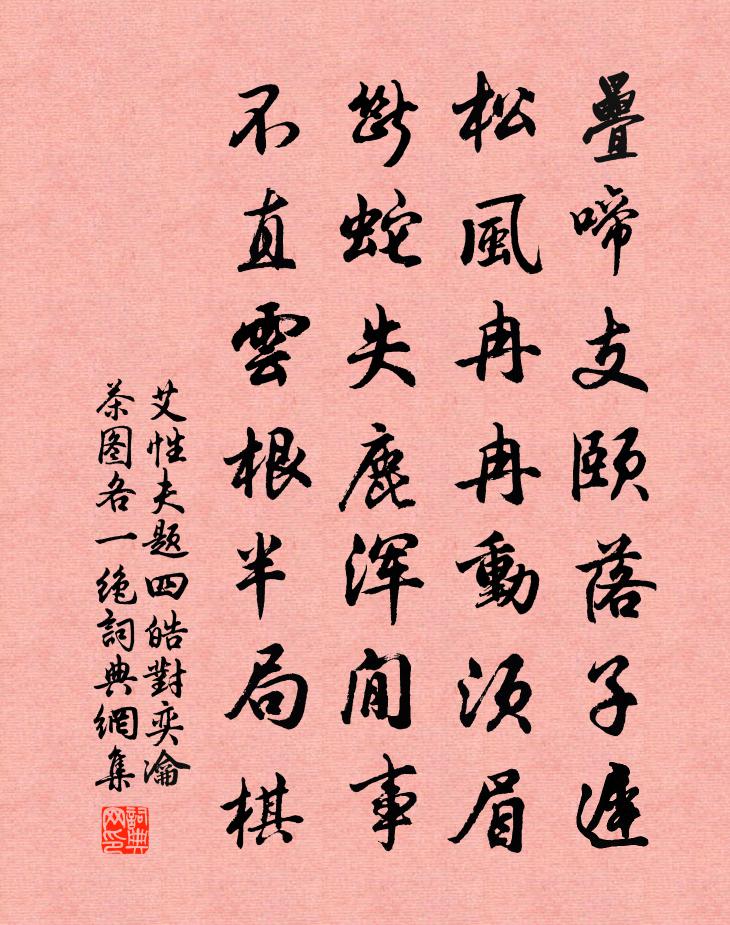 疊啼支頤落子遲
松風冉冉動須眉
斷蛇失鹿浑閒事
不直雲根半局棋
艾性夫題四皓對奕瀹
茶图各一绝詞典網集
詞典网印